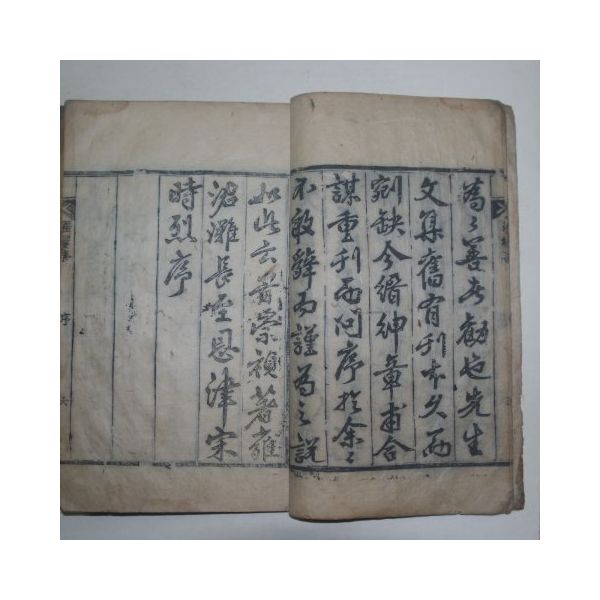 為之善者勸也先生
文集舊有刊本久而
剜缺今縉紳章甫合
謀重刊而問序於余々
不敢辭而謹為之說
如此云崇禎著雍
涒灘長至恩津宋
時烈序
序